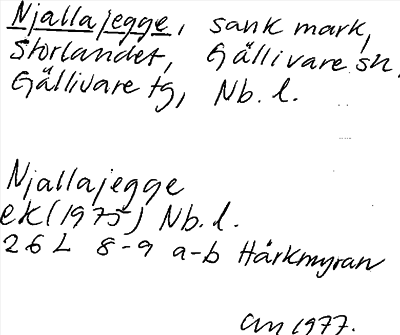 Njallajegge, sank mark,
Storlandet, Gällivare sn,
Gällivare tg, Nb. l.
Njallajegge
ek (1975) Nb. l.
26L 8-9 a-b Härkmyran
1977.